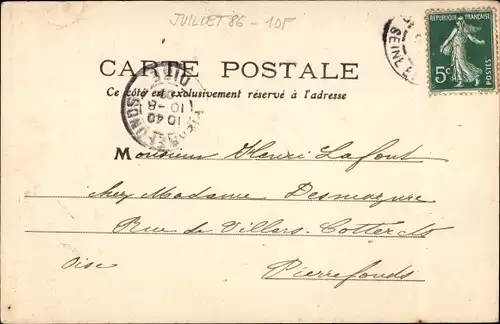 JUILLET 86 - 10F
RÉPUBLIQUE FRANÇAISE
5c
POSTES
SEINE
CARTE POSTALE
Ce côté est exclusivement réservé à l'adresse
OISE
10 40
10-8
PIERREFONDS
Monsieur Henri Lafont
chez Madame Desmazure
Rue de Villers-Cotterets
Oise
Pierrefonds